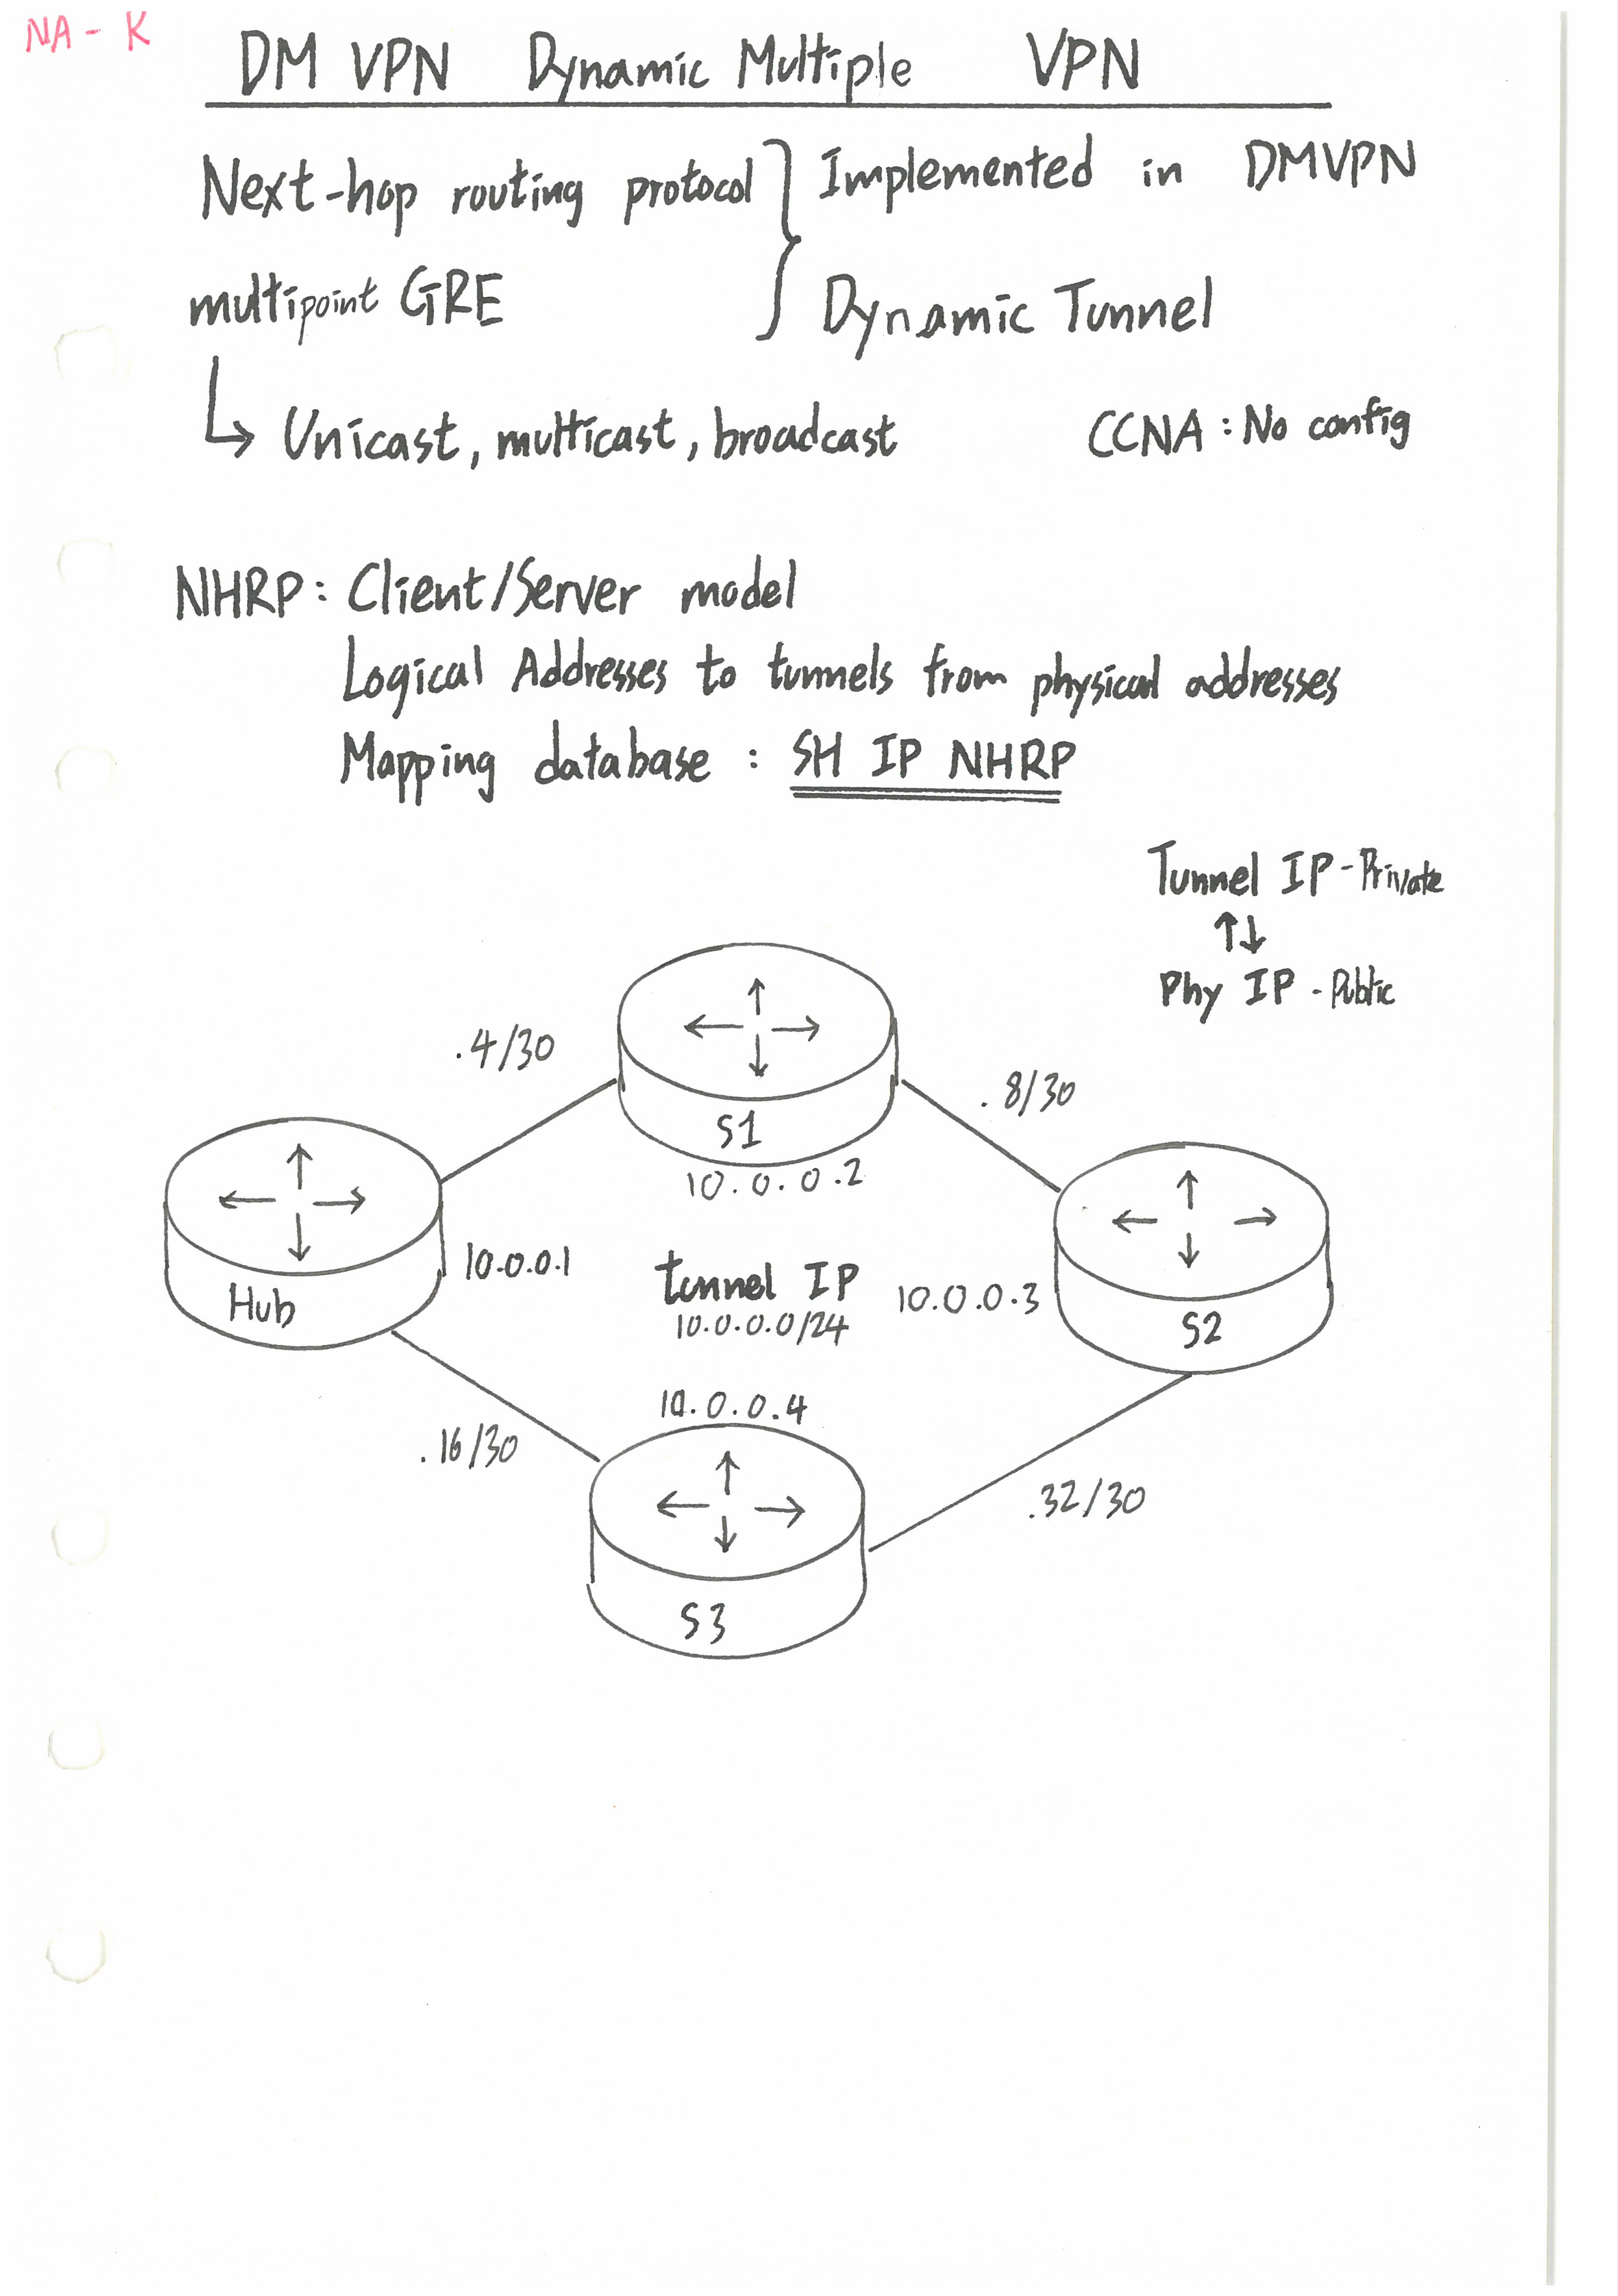 NA - K
DM VPN Dynamic Multiple VPN
Next-hop routing protocol } Implemented in DMVPN
multipoint GRE Dynamic Tunnel
↳ Unicast, multicast, broadcast CCNA : No config
NHRP : Client/Server model
Logical Addresses to tunnels from physical addresses
Mapping database : SH IP NHRP
Tunnel IP - Private
↑↓
Phy IP - Public
.4/30
.8/30
S1
10.0.0.2
10.0.0.1
Hub
tunnel IP
10.0.0.0/24
10.0.0.3
S2
10.0.0.4
.16/30
.32/30
S3